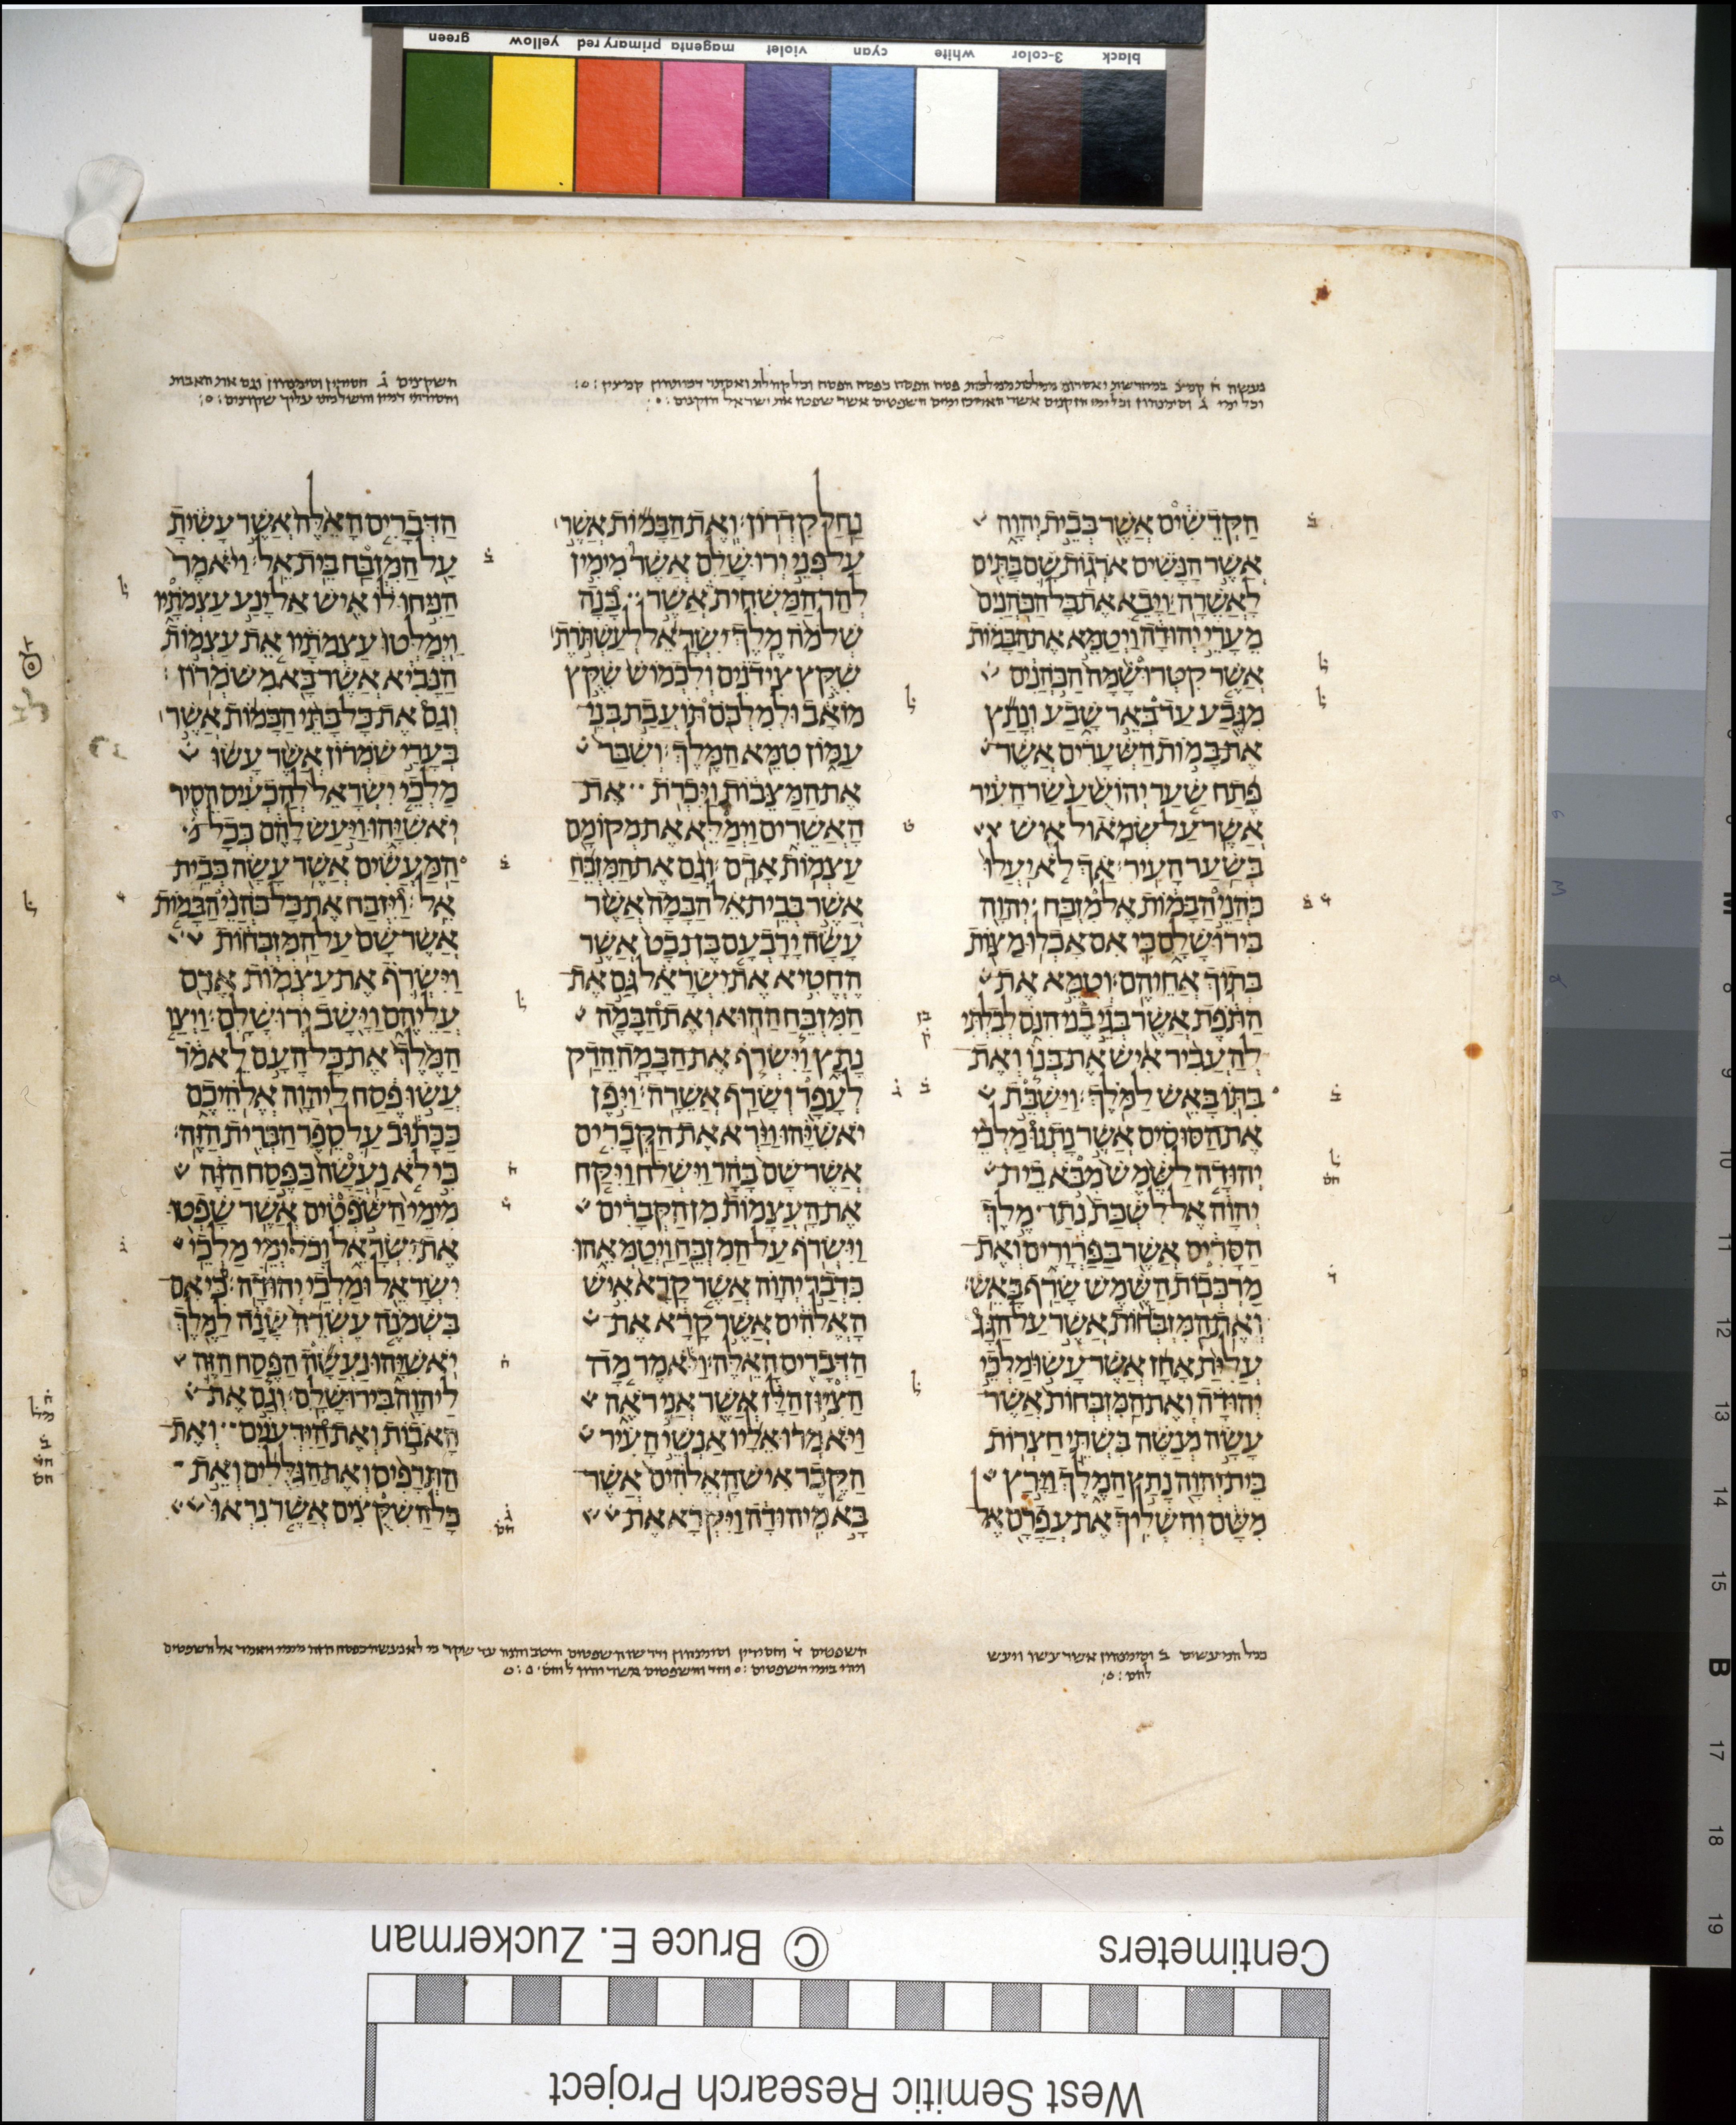 black 3-color white cyan violet magenta primary red yellow green
הַקְּדֵשִׁים אֲשֶׁר בְּבֵית יְהוָה
אֲשֶׁר הַנָּשִׁים אֹרְגוֹת שָׁם בָּתִּים
לָאֲשֵׁרָה׃ וַיָּבֵא אֶת כָּל הַכֹּהֲנִים
מֵעָרֵי יְהוּדָה וַיְטַמֵּא אֶת הַבָּמוֹת
אֲשֶׁר קִטְּרוּ שָׁמָּה הַכֹּהֲנִים
מִגֶּבַע עַד בְּאֵר שָׁבַע וְנָתַץ
אֶת בָּמוֹת הַשְּׁעָרִים אֲשֶׁר
פֶּתַח שַׁעַר יְהוֹשֻׁעַ שַׂר הָעִיר
אֲשֶׁר עַל שְׂמֹאול אִישׁ
בְּשַׁעַר הָעִיר׃ אַךְ לֹא יַעֲלוּ
כֹּהֲנֵי הַבָּמוֹת אֶל מִזְבַּח יְהוָה
בִּירוּשָׁלִָם כִּי אִם אָכְלוּ מַצּוֹת
בְּתוֹךְ אֲחֵיהֶם׃ וְטִמֵּא אֶת
הַתֹּפֶת אֲשֶׁר בְּגֵי בְנֵי הִנֹּם לְבִלְתִּי
לְהַעֲבִיר אִישׁ אֶת בְּנוֹ וְאֶת
בִּתּוֹ בָּאֵשׁ לַמֹּלֶךְ׃ וַיַּשְׁבֵּת
אֶת הַסּוּסִים אֲשֶׁר נָתְנוּ מַלְכֵי
יְהוּדָה לַשֶּׁמֶשׁ מִבֹּא בֵית
יְהוָה אֶל לִשְׁכַּת נְתַן מֶלֶךְ
הַסָּרִיס אֲשֶׁר בַּפַּרְוָרִים וְאֶת
מַרְכְּבוֹת הַשֶּׁמֶשׁ שָׂרַף בָּאֵשׁ׃
וְאֶת הַמִּזְבְּחוֹת אֲשֶׁר עַל הַגָּג
עֲלִיַּת אָחָז אֲשֶׁר עָשׂוּ מַלְכֵי
יְהוּדָה וְאֶת הַמִּזְבְּחוֹת אֲשֶׁר
עָשָׂה מְנַשֶּׁה בִּשְׁתֵּי חַצְרוֹת
בֵּית יְהוָה נָתַץ הַמֶּלֶךְ וַיָּרָץ
מִשָּׁם וְהִשְׁלִיךְ אֶת עֲפָרָם אֶל
נַחַל קִדְרוֹן׃ וְאֶת הַבָּמוֹת אֲשֶׁר
עַל פְּנֵי יְרוּשָׁלִַם אֲשֶׁר מִימִין
לְהַר הַמַּשְׁחִית אֲשֶׁר בָּנָה
שְׁלֹמֹה מֶלֶךְ יִשְׂרָאֵל לְעַשְׁתֹּרֶת
שִׁקֻּץ צִידֹנִים וְלִכְמוֹשׁ שִׁקֻּץ
מוֹאָב וּלְמִלְכֹּם תּוֹעֲבַת בְּנֵי
עַמּוֹן טִמֵּא הַמֶּלֶךְ׃ וְשִׁבַּר
אֶת הַמַּצֵּבוֹת וַיִּכְרֹת אֶת
הָאֲשֵׁרִים וַיְמַלֵּא אֶת מְקוֹמָם
עַצְמוֹת אָדָם׃ וְגַם אֶת הַמִּזְבֵּחַ
אֲשֶׁר בְּבֵית אֵל הַבָּמָה אֲשֶׁר
עָשָׂה יָרָבְעָם בֶּן נְבָט אֲשֶׁר
הֶחֱטִיא אֶת יִשְׂרָאֵל גַּם אֶת
הַמִּזְבֵּחַ הַהוּא וְאֶת הַבָּמָה
נָתָץ וַיִּשְׂרֹף אֶת הַבָּמָה הֵדַק
לְעָפָר וְשָׂרַף אֲשֵׁרָה׃ וַיִּפֶן
יֹאשִׁיָּהוּ וַיַּרְא אֶת הַקְּבָרִים
אֲשֶׁר שָׁם בָּהָר וַיִּשְׁלַח וַיִּקַּח
אֶת הָעֲצָמוֹת מִן הַקְּבָרִים
וַיִּשְׂרֹף עַל הַמִּזְבֵּחַ וַיְטַמְּאֵהוּ
כִּדְבַר יְהוָה אֲשֶׁר קָרָא אִישׁ
הָאֱלֹהִים אֲשֶׁר קָרָא אֶת
הַדְּבָרִים הָאֵלֶּה׃ וַיֹּאמֶר מָה
הַצִּיּוּן הַלָּז אֲשֶׁר אֲנִי רֹאֶה
וַיֹּאמְרוּ אֵלָיו אַנְשֵׁי הָעִיר
הַקֶּבֶר אִישׁ הָאֱלֹהִים אֲשֶׁר
בָּא מִיהוּדָה וַיִּקְרָא אֶת
הַדְּבָרִים הָאֵלֶּה אֲשֶׁר עָשִׂיתָ
עַל הַמִּזְבַּח בֵּית אֵל׃ וַיֹּאמֶר
הַנִּיחוּ לוֹ אִישׁ אַל יָנַע עַצְמֹתָיו
וַיְמַלְּטוּ עַצְמֹתָיו אֵת עַצְמוֹת
הַנָּבִיא אֲשֶׁר בָּא מִשֹּׁמְרוֹן׃
וְגַם אֶת כָּל בָּתֵּי הַבָּמוֹת אֲשֶׁר
בְּעָרֵי שֹׁמְרוֹן אֲשֶׁר עָשׂוּ
מַלְכֵי יִשְׂרָאֵל לְהַכְעִיס הֵסִיר
יֹאשִׁיָּהוּ וַיַּעַשׂ לָהֶם כְּכָל
הַמַּעֲשִׂים אֲשֶׁר עָשָׂה בְּבֵית
אֵל׃ וַיִּזְבַּח אֶת כָּל כֹּהֲנֵי הַבָּמוֹת
אֲשֶׁר שָׁם עַל הַמִּזְבְּחוֹת
וַיִּשְׂרֹף אֶת עַצְמוֹת אָדָם
עֲלֵיהֶם וַיָּשָׁב יְרוּשָׁלִָם׃ וַיְצַו
הַמֶּלֶךְ אֶת כָּל הָעָם לֵאמֹר
עֲשׂוּ פֶסַח לַיהוָה אֱלֹהֵיכֶם
כַּכָּתוּב עַל סֵפֶר הַבְּרִית הַזֶּה׃
כִּי לֹא נַעֲשָׂה כַּפֶּסַח הַזֶּה
מִימֵי הַשֹּׁפְטִים אֲשֶׁר שָׁפְטוּ
אֶת יִשְׂרָאֵל וְכֹל יְמֵי מַלְכֵי
יִשְׂרָאֵל וּמַלְכֵי יְהוּדָה׃ כִּי אִם
בִּשְׁמֹנֶה עֶשְׂרֵה שָׁנָה לַמֶּלֶךְ
יֹאשִׁיָּהוּ נַעֲשָׂה הַפֶּסַח הַזֶּה
לַיהוָה בִּירוּשָׁלִָם׃ וְגַם אֶת
הָאֹבוֹת וְאֶת הַיִּדְּעֹנִים וְאֶת
הַתְּרָפִים וְאֶת הַגִּלֻּלִים וְאֵת
כָּל הַשִּׁקֻּצִים אֲשֶׁר נִרְאוּ
Centimeters © Bruce E. Zuckerman
West Semitic Research Project